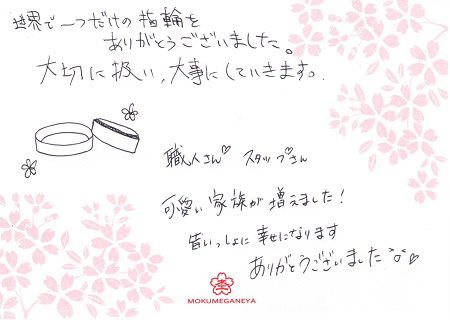 世界で一つだけの指輪を
ありがとうございました。
大切に扱い、大事にしていきます。
職人さん♡ スタッフさん
可愛い家族が増えました!
皆いっしょに幸せになります
ありがとうございました
MOKUMEGANEYA